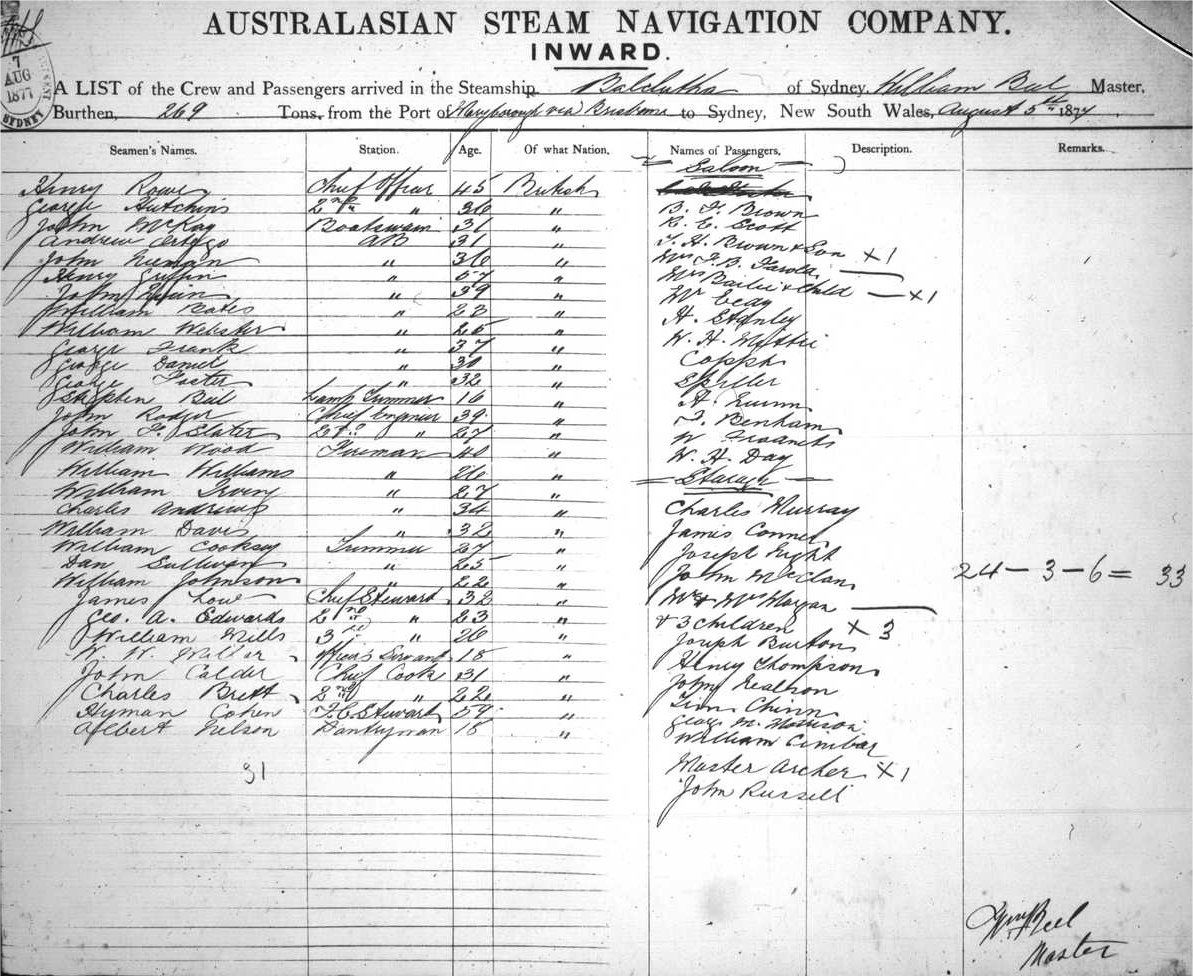 AUSTRALASIAN STEAM NAVIGATION COMPANY.
INWARD.
7
AUG
1877
SYDNEY
A LIST of the Crew and Passengers arrived in the Steamship Balclutha of Sydney, William Beel Master,
Burthen, 269 Tons, from the Port of Maryborough via Brisbane to Sydney, New South Wales, August 5th 1877
Seamen's Names. Station. Age. Of what Nation. Names of Passengers. Description. Remarks.
Saloon
Henry Rowe Chief Officer 45 British
George Hutchins 2nd " 36 " B. F. Brown
John McKay Boatswain 31 " R. E. Scott
Andrew AB 31 " T. H. Brown & Son X 1
John " 36 " Mrs F. B.
Henry Griffin " 57 " Mrs Bailie & Child X 1
John " 39 " Mr Eedy
William Bates " 23 " H. Stanley
William Webster " 25 " W. H.
George Frank " 37 " Copph
George Daniel " 30 " Spiller
George Foster " 32 "
Stephen Beel Lamp Trimmer 16 " Quinn
John Rodger Chief Engineer 39 " Benham
John F. Slater 2nd " 27 " W
William Wood Fireman 40 " W. H. Day
William Williams " 26 " Steerage
William Irving " 27 "
Charles Andrews " 34 " Charles Murray
William Davis " 32 " James Connel
William Cooksey Trimmer 27 " Joseph Light
Dan Sullivan " 25 " John McClan 24 - 3 - 6 = 33
William Johnson " 22 "
James Low Chief Steward 32 " Mr & Mrs Morgan
Geo. A. Edwards 2nd " 23 " & 3 children X 3
William Mills 3rd " 26 " Joseph Burton
W. W. Miller Officers Servant 18 " Henry Thompson
John Calder Chief Cook 31 " John
Charles Brett 2nd " 22 " Chinn
Hyman Cohen F. C. Steward 59 " George M. Morrison
Albert Nelson Pantryman 18 " William
31 Master Archer X 1
John Russell
Wm Beel
Master